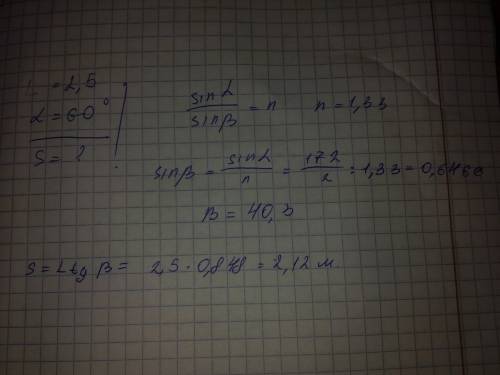 = 2,5
α = 60°
S = ?
sin α / sin β = n n = 1,33
sin β = sin α / n = 1,72 / 2 : 1,33 = 0,6466
β = 40,3
S = L tg β = 2,5 · 0,848 = 2,12 м.